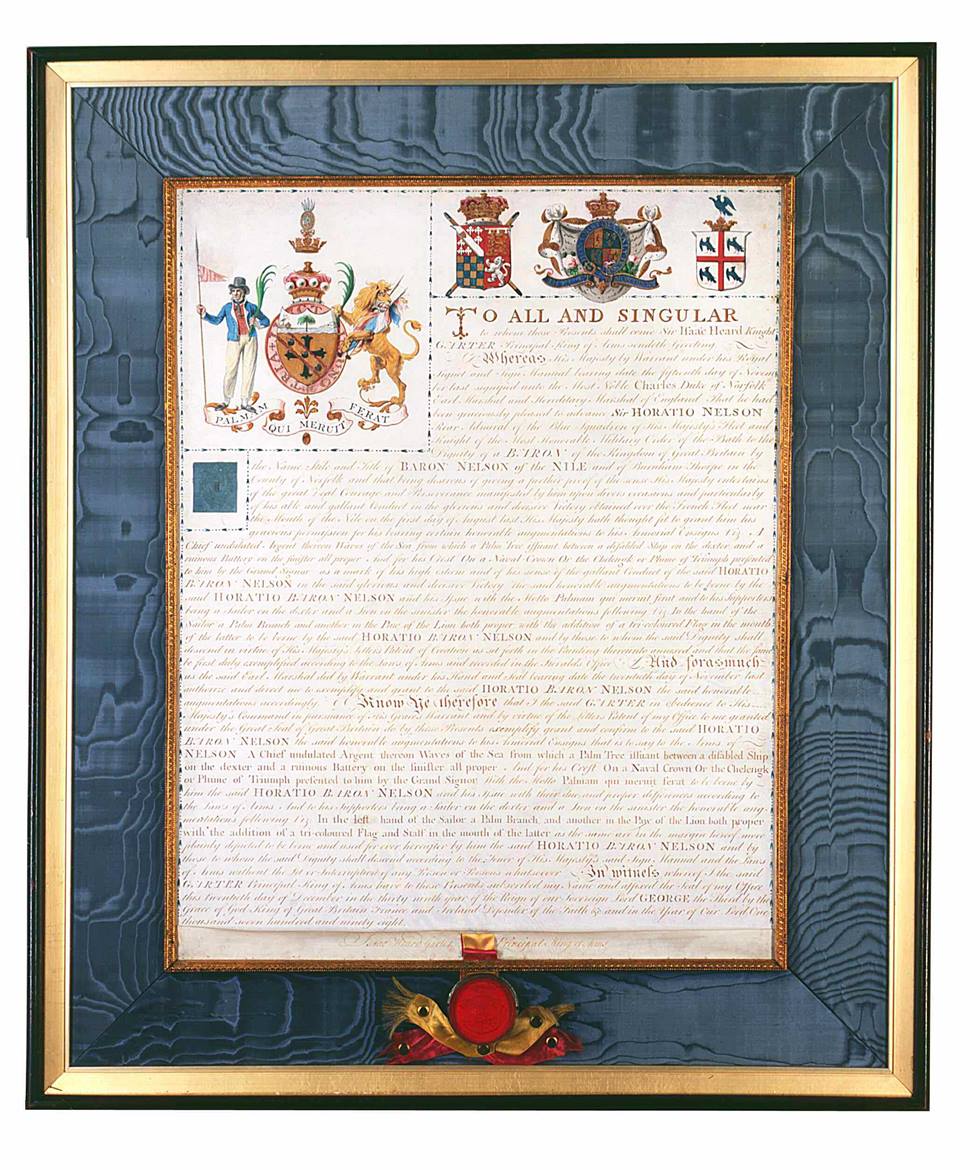 PALMAM QUI MERUIT FERAT
TRIA JUNCTA
TO ALL AND SINGULAR
to whom these Presents shall come Sir Isaac Heard Knight
GARTER Principal King of Arms sendeth Greeting
Whereas His Majesty by Warrant under his Royal
Signet and Sign Manual bearing date the fifteenth day of Novem
ber last signified unto the Most Noble Charles Duke of Norfolk
Earl Marshal and Hereditary Marshal of England That he had
been graciously pleased to advance Sir HORATIO NELSON
Rear Admiral of the Blue Squadron of His Majesty's Fleet and
Knight of the Most Honorable Military Order of the Bath to the
Dignity of a BARON of the Kingdom of Great Britain by
the Name Stile and Title of BARON NELSON of the NILE and of Burnham Thorpe in the
County of Norfolk and that being desirous of giving a further proof of the sense His Majesty entertains
of the great Zeal Courage and Perseverance manifested by him upon divers occasions and particularly
of his able and gallant Conduct in the glorious and decisive Victory obtained over the French Fleet near
the Mouth of the Nile on the first day of August last His Majesty hath thought fit to grant him his
gracious permission for his bearing certain honorable augmentations to his Armorial Ensigns Viz. A
Chief undulated Argent thereon Waves of the Sea from which a Palm Tree issuant between a disabled Ship on the dexter and a
ruinous Battery on the sinister all proper And for his Crest On a Naval Crown Or the Chelengk or Plume of Triumph presented
to him by the Grand Signor as a mark of his high esteem and of his sense of the gallant Conduct of the said HORATIO
BARON NELSON in the said glorious and decisive Victory The said honorable augmentations to be borne by the
said HORATIO BARON NELSON and his Issue with the Motto Palmam qui meruit ferat and to his Supporters
being a Sailor on the dexter and a Lion on the sinister the honorable augmentations following Viz. In the hand of the
Sailor a Palm Branch and another in the Paw of the Lion both proper with the addition of a tri-coloured Flag in the mouth
of the latter to be borne by the said HORATIO BARON NELSON and by those to whom the said Dignity shall
descend in virtue of His Majesty's Letters Patent of Creation as set forth in the Painting thereunto annexed and that the same
be first duly exemplified according to the Laws of Arms and recorded in the Heralds Office And forasmuch
as the said Earl Marshal did by Warrant under his Hand and Seal bearing date the twentieth day of November last
authorize and direct me to exemplify and grant to the said HORATIO BARON NELSON the said honorable
augmentations accordingly Know Ye therefore that I the said GARTER in obedience to His
Majesty's Command in pursuance of His Grace's Warrant and by virtue of the Letters Patent of my Office to me granted
under the Great Seal of Great Britain do by these Presents exemplify grant and confirm to the said HORATIO
BARON NELSON the said honorable augmentations to his Armorial Ensigns that is to say to the Arms of
NELSON A Chief undulated Argent thereon Waves of the Sea from which a Palm Tree issuant between a disabled Ship
on the dexter and a ruinous Battery on the sinister all proper And for his Crest On a Naval Crown Or the Chelengk
or Plume of Triumph presented to him by the Grand Signor With the Motto Palmam qui meruit ferat to be borne by
him the said HORATIO BARON NELSON and his Issue with their due and proper differences according to
the Laws of Arms And to his Supporters being a Sailor on the dexter and a Lion on the sinister the honorable aug-
mentations following Viz. In the left hand of the Sailor a Palm Branch, and another in the Paw of the Lion both proper
with the addition of a tri-coloured Flag and Staff in the mouth of the latter as the same are in the margin hereof more
plainly depicted to be borne and used for ever hereafter by him the said HORATIO BARON NELSON and by
those to whom the said Dignity shall descend according to the Tenor of His Majesty's said Sign Manual and the Laws
of Arms without the Let or Interruption of any Person or Persons whatsoever In witness whereof I the said
GARTER Principal King of Arms have to these Presents subscribed my Name and affixed the Seal of my Office
this twentieth day of December in the thirty ninth year of the Reign of our Sovereign Lord GEORGE the Third by the
Grace of God King of Great Britain France and Ireland Defender of the Faith &c and in the Year of Our Lord One
thousand seven hundred and ninety eight.
Isaac Heard Garter Principal King of Arms